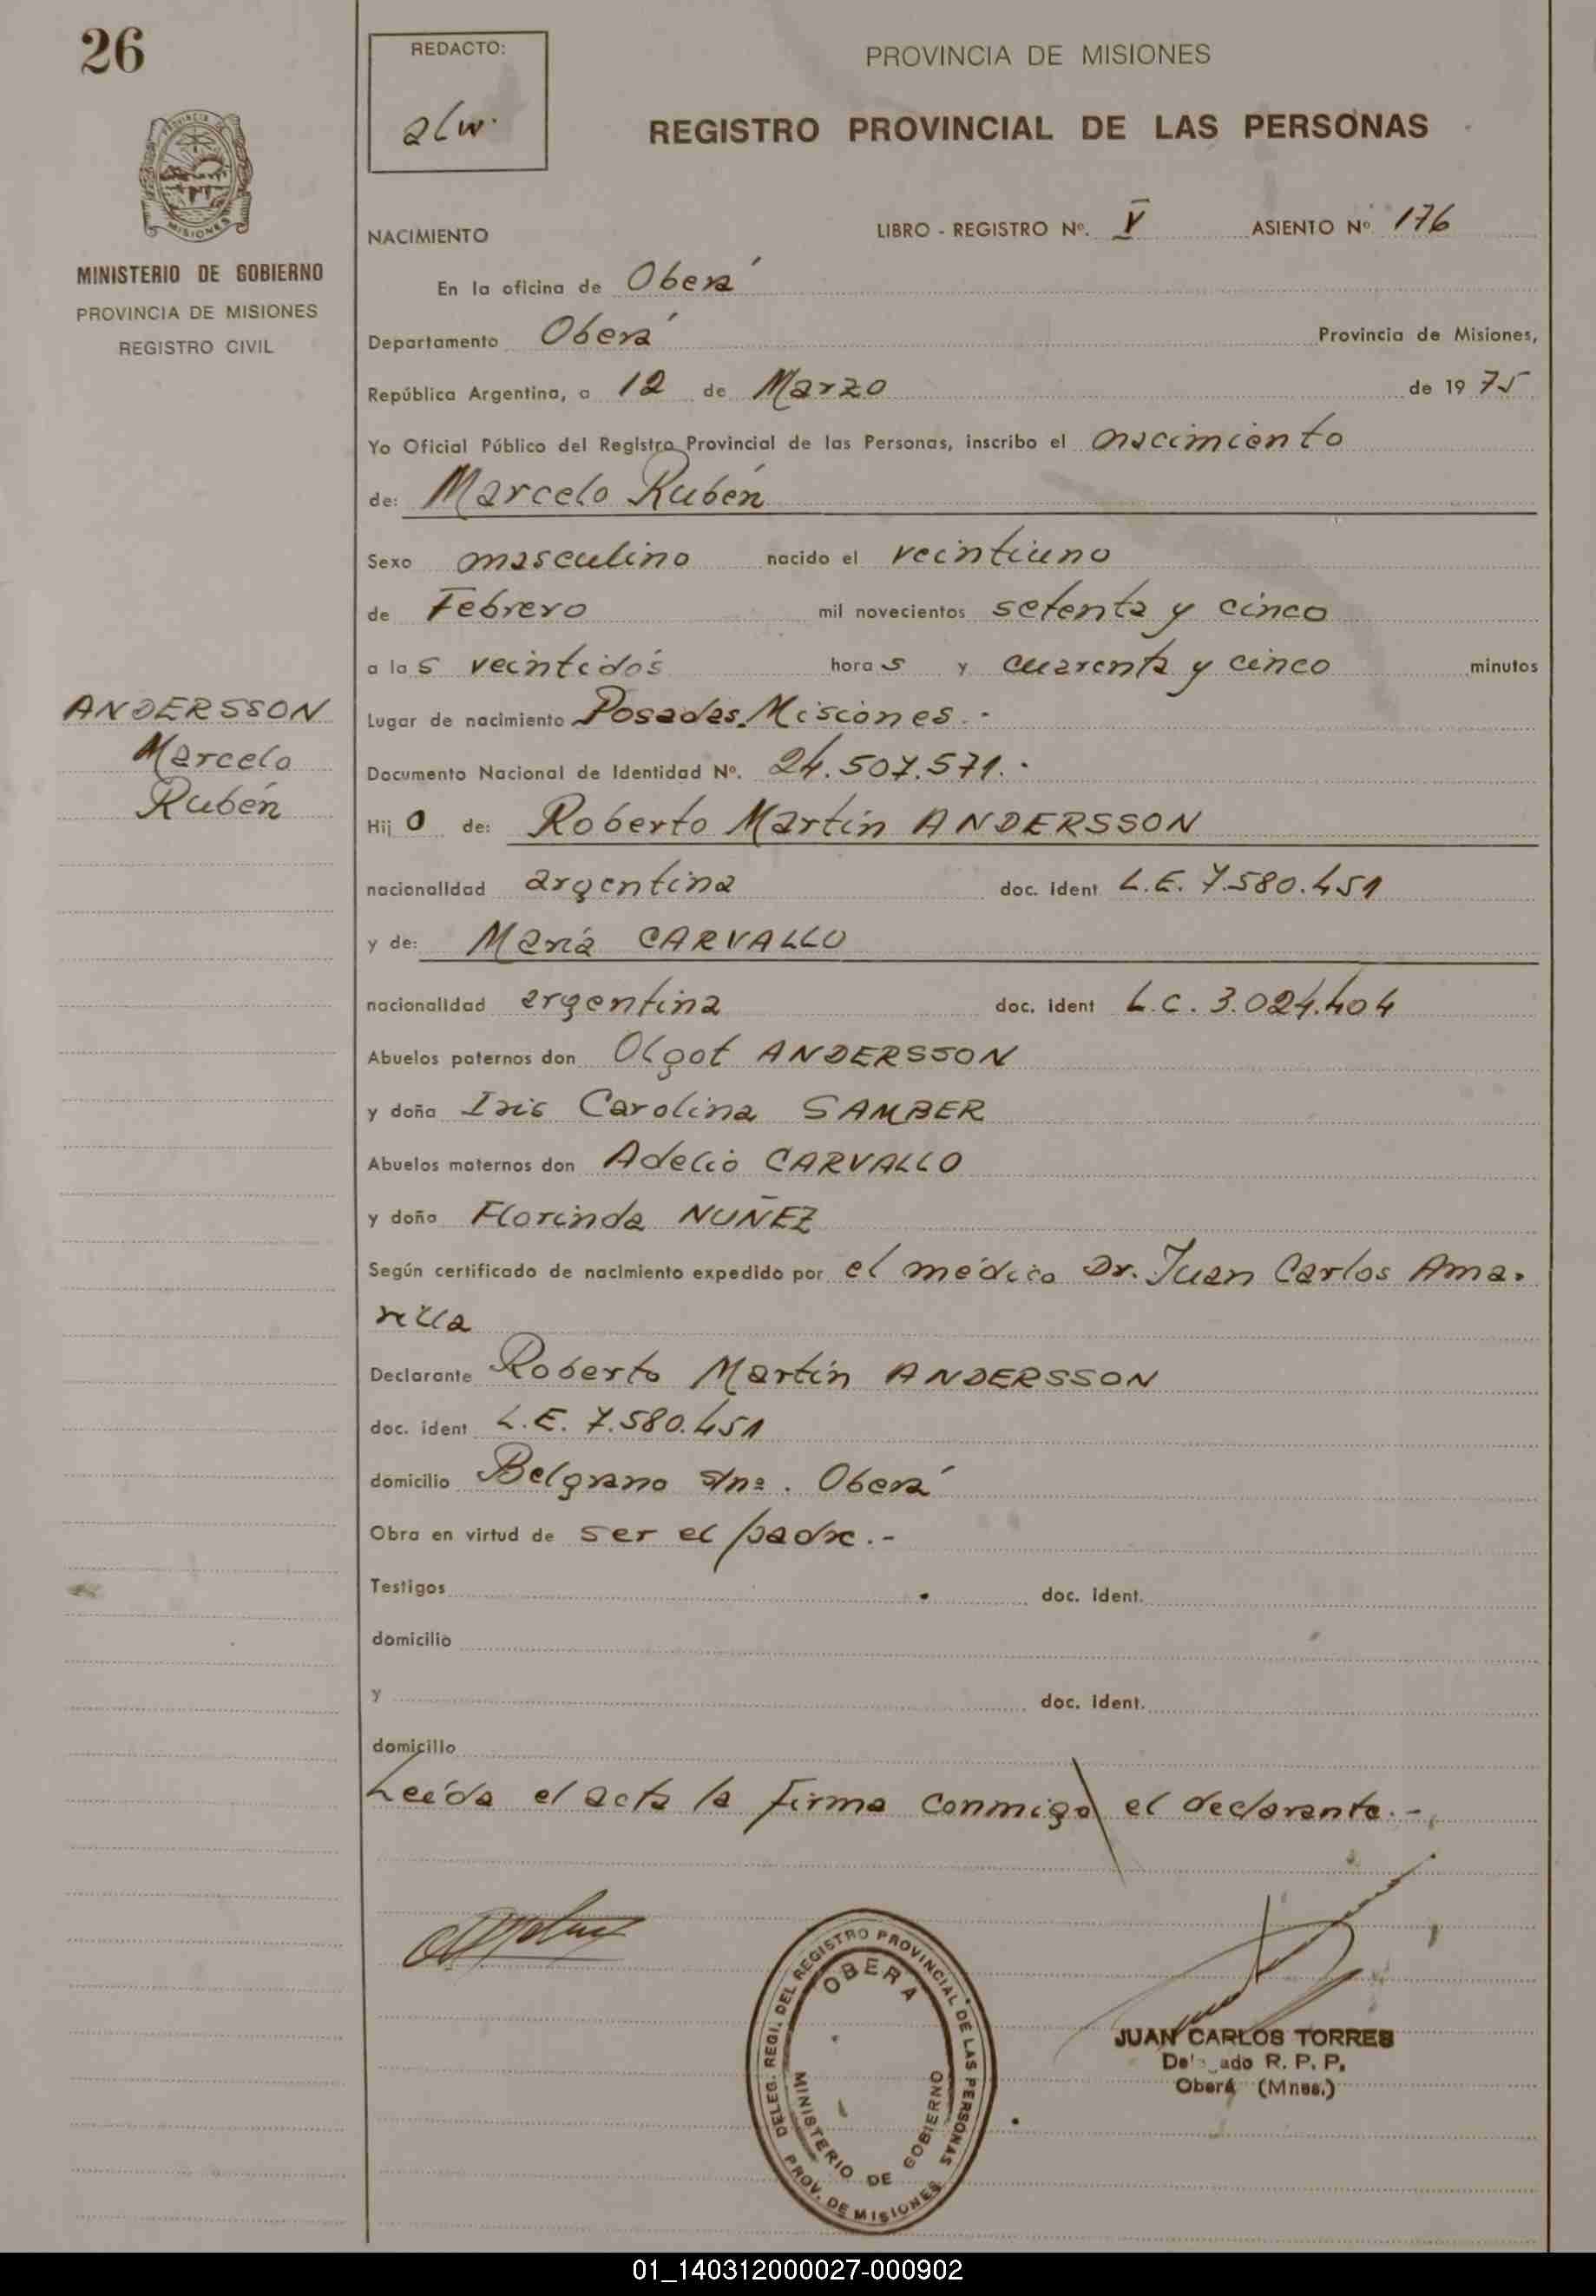 26
REDACTO:
alw.
PROVINCIA DE MISIONES
REGISTRO PROVINCIAL DE LAS PERSONAS
MISIONES
MINISTERIO DE GOBIERNO
PROVINCIA DE MISIONES
REGISTRO CIVIL
NACIMIENTO LIBRO - REGISTRO Nº. V ASIENTO Nº. 176
En la oficina de Oberá
Departamento Oberá Provincia de Misiones,
República Argentina, a 12 de Marzo de 19 75
Yo Oficial Público del Registro Provincial de las Personas, inscribo el nacimiento
de: Marcelo Rubén
Sexo masculino nacido el veintiuno
de Febrero mil novecientos setenta y cinco
a las veintidós horas y cuarenta y cinco minutos
ANDERSSON
Marcelo
Rubén
Lugar de nacimiento Posadas. Misiones.-
Documento Nacional de Identidad Nº. 24.507.571.-
Hijo de: Roberto Martín ANDERSSON
nacionalidad argentina doc. ident L.E. 7.580.451
y de: María CARVALLO
nacionalidad argentina doc. ident L.C. 3.024.404
Abuelos paternos don Olgot ANDERSSON
y doña Iris Carolina SAMBER
Abuelos maternos don Adelio CARVALLO
y doña Florinda NUÑEZ
Según certificado de nacimiento expedido por el médico Dr. Juan Carlos Ama-
rilla
Declarante Roberto Martín ANDERSSON
doc. ident L.E. 7.580.451
domicilio Belgrano s/nº. Oberá
Obra en virtud de ser el padre.-
Testigos doc. ident.
domicilio
y doc. ident.
domicilio
Leída el acta la firma conmigo el declarante.-
DELEG. REGI. DEL REGISTRO PROVINCIAL DE LAS PERSONAS
OBERA
MINISTERIO DE GOBIERNO
PROV. DE MISIONES
JUAN CARLOS TORRES
R. P. P.
Oberá (Mnes.)
01_140312000027-000902